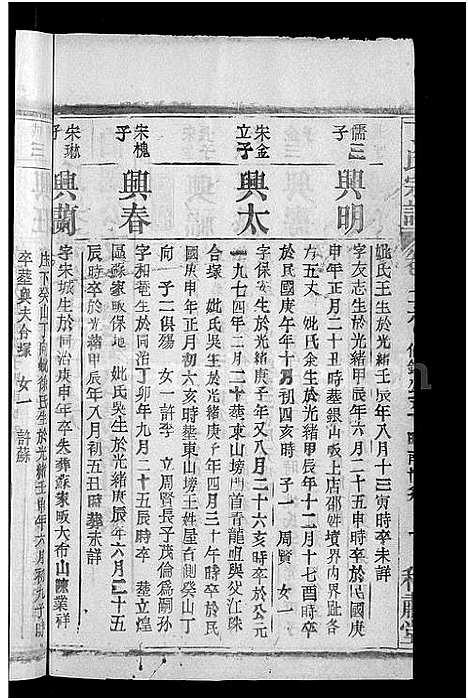 氏宗譜
儒三子
興明
妣氏王生於光緒壬辰年八月十三寅時卒未詳
字友志生於光緒甲辰年六月二十五申時卒於民國庚
申年正月二十丑時塟銀山畈上店邵姓墳界內界趾各
方五丈 妣氏余生於光緒甲辰年十二月十七酉時卒
於民國庚午年十月初四亥時 子一 周賢 女一
宋金立子
興太
字保安生於光緒庚子年又八月二十六亥時卒於公元
一九七四年二月二十 塟東山塝門首青龍咀與艾江姝
合塚 妣氏吳生於光緒庚子年四月三十午時卒於民
國庚申年正月初六亥時塟東山王姓屋右側癸山丁
向 一子二俱殤 女一 許李 立周賢長子茂倫為嗣孫
宋槐子
興春
字和菴生於同治丁卯年九月二十五辰時卒 塟立煌
區蘇家畈保地 妣氏吳生於光緒庚辰年六月二十五
辰時卒於光緒甲辰年八月初五丑時塟未詳
宋琳子
興蘭
字宋城生於同治庚申年卒失葬森家畈大布山陳業祥
庄下癸山丁向 妣徐氏生於光緒壬申年六月初九子時
卒塟與夫合塚 女一 許蘇